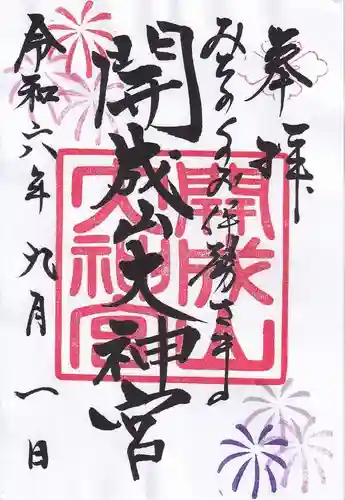 奉拝
みちのくのお伊勢さま
開成山大神宮
令和六年 九月 一日
開成山
大神宮